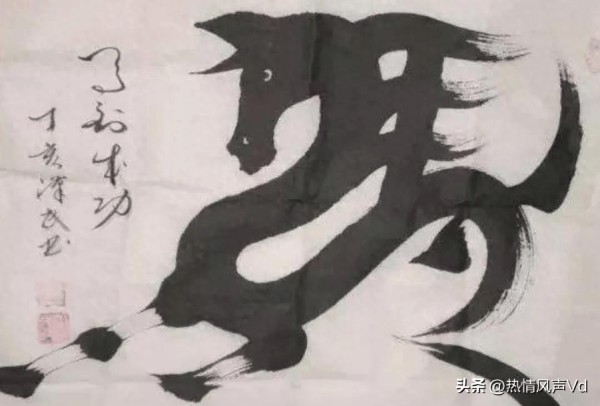 马到成功
丁亥泽民书
头条 @热情风声Vd